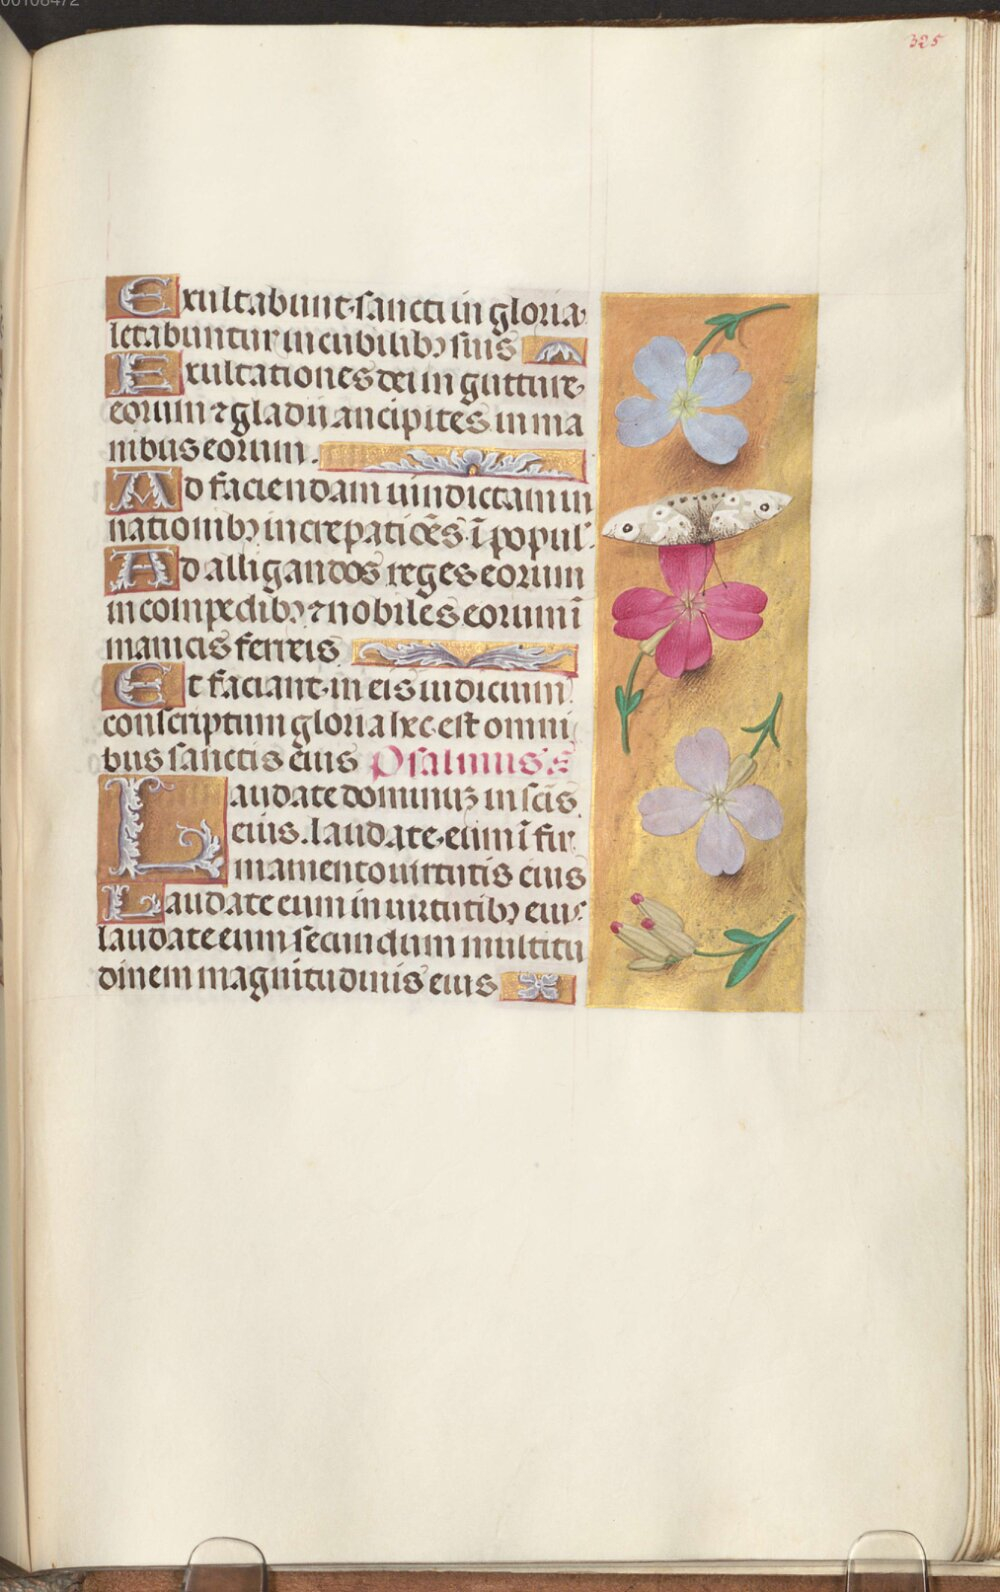 00108472
325
Exultabunt sancti in gloria
letabuntur in cubilibꝰ suis
Exultationes dei in gutture
eorum ⁊ gladii ancipites in ma
nibus eorum.
Ad faciendam uindictam in
nationibꝰ increpatiōes ī popul'
Ad alligandos reges eorum
in compedibꝰ ⁊ nobiles eorum ī
manicis ferreis
Et faciant in eis iudicium
conscriptum gloria hec est omni
bus sanctis eius Psalmus
Laudate dominuꝫ in scīs
eius. laudate eum ī fir
mamento uirtutis eius
Laudate eum in uirtutibꝰ eius
laudate eum secundum multitu
dinem magnitudinis eius